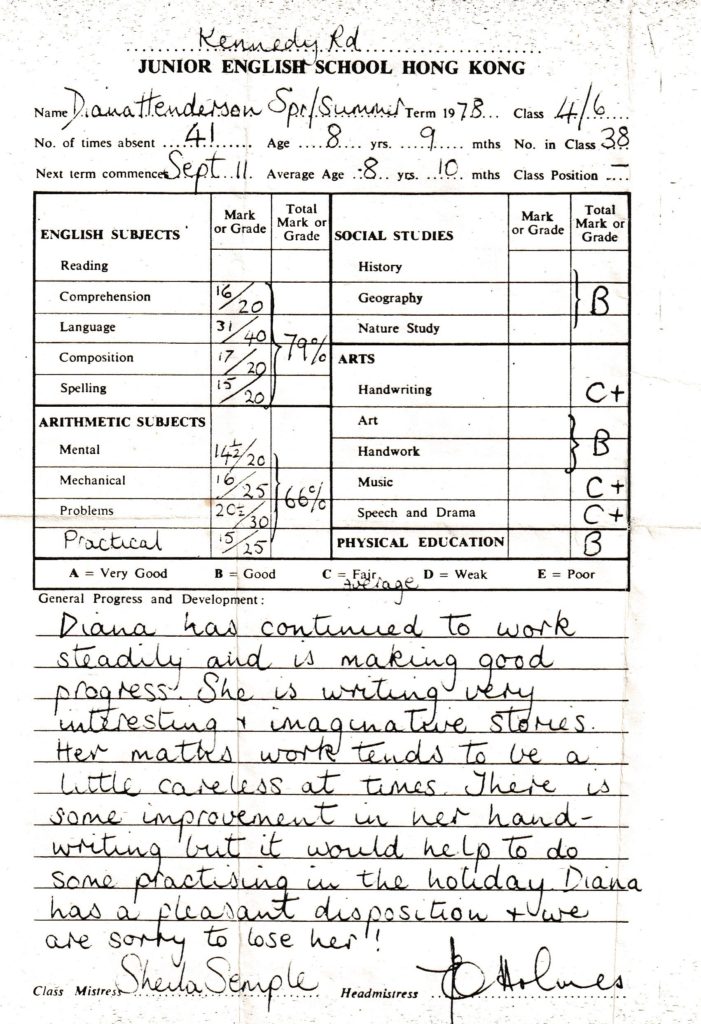 Kennedy Rd
JUNIOR ENGLISH SCHOOL HONG KONG
Name Diana Henderson Spr/Summer Term 1978 Class 4/6
No. of times absent 41 Age 8 yrs. 9 mths No. in Class 38
Next term commences Sept 11 Average Age 8 yrs. 10 mths Class Position –
ENGLISH SUBJECTS Mark or Grade Total Mark or Grade
Reading
Comprehension 16/20
Language 31/40
79%
Composition 17/20
Spelling 15/20
ARITHMETIC SUBJECTS
Mental 14½/20
Mechanical 16/25
66%
Problems 20½/30
Practical 15/25
SOCIAL STUDIES Mark or Grade Total Mark or Grade
History
Geography B
Nature Study
ARTS
Handwriting C+
Art
B
Handwork
Music C+
Speech and Drama C+
PHYSICAL EDUCATION B
A = Very Good B = Good C = Fair D = Weak E = Poor
Average
General Progress and Development:
Diana has continued to work
steadily and is making good
progress. She is writing very
interesting + imaginative stories.
Her maths work tends to be a
little careless at times. There is
some improvement in her hand-
writing but it would help to do
some practising in the holiday. Diana
has a pleasant disposition + we
are sorry to lose her!
Class Mistress Sheila Semple Headmistress Holmes